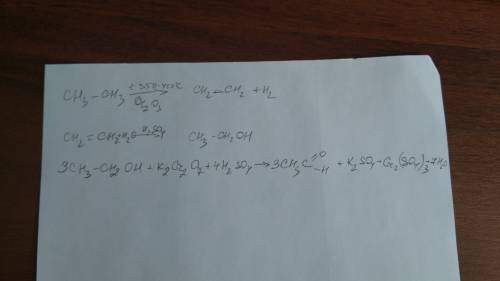 CH3 – CH3 t 350-450°C → Cr2O3 CH2 – CH2 + H2
CH2 = CH2 + H2O H2SO4 → CH3 – CH2OH
3CH3 – CH2OH + K2Cr2O7 + 4H2SO4 → 3CH3 C =O –H + K2SO4 + Cr2(SO4)3 + 7H2O